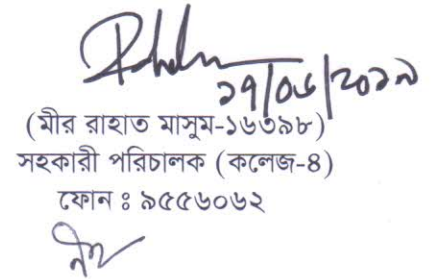 ১৭/০৬/২০১৯
(মীর রাহাত মাসুম-১৬৩৯৮)
সহকারী পরিচালক (কলেজ-৪)
ফোন ঃ ৯৫৫৬০৬২